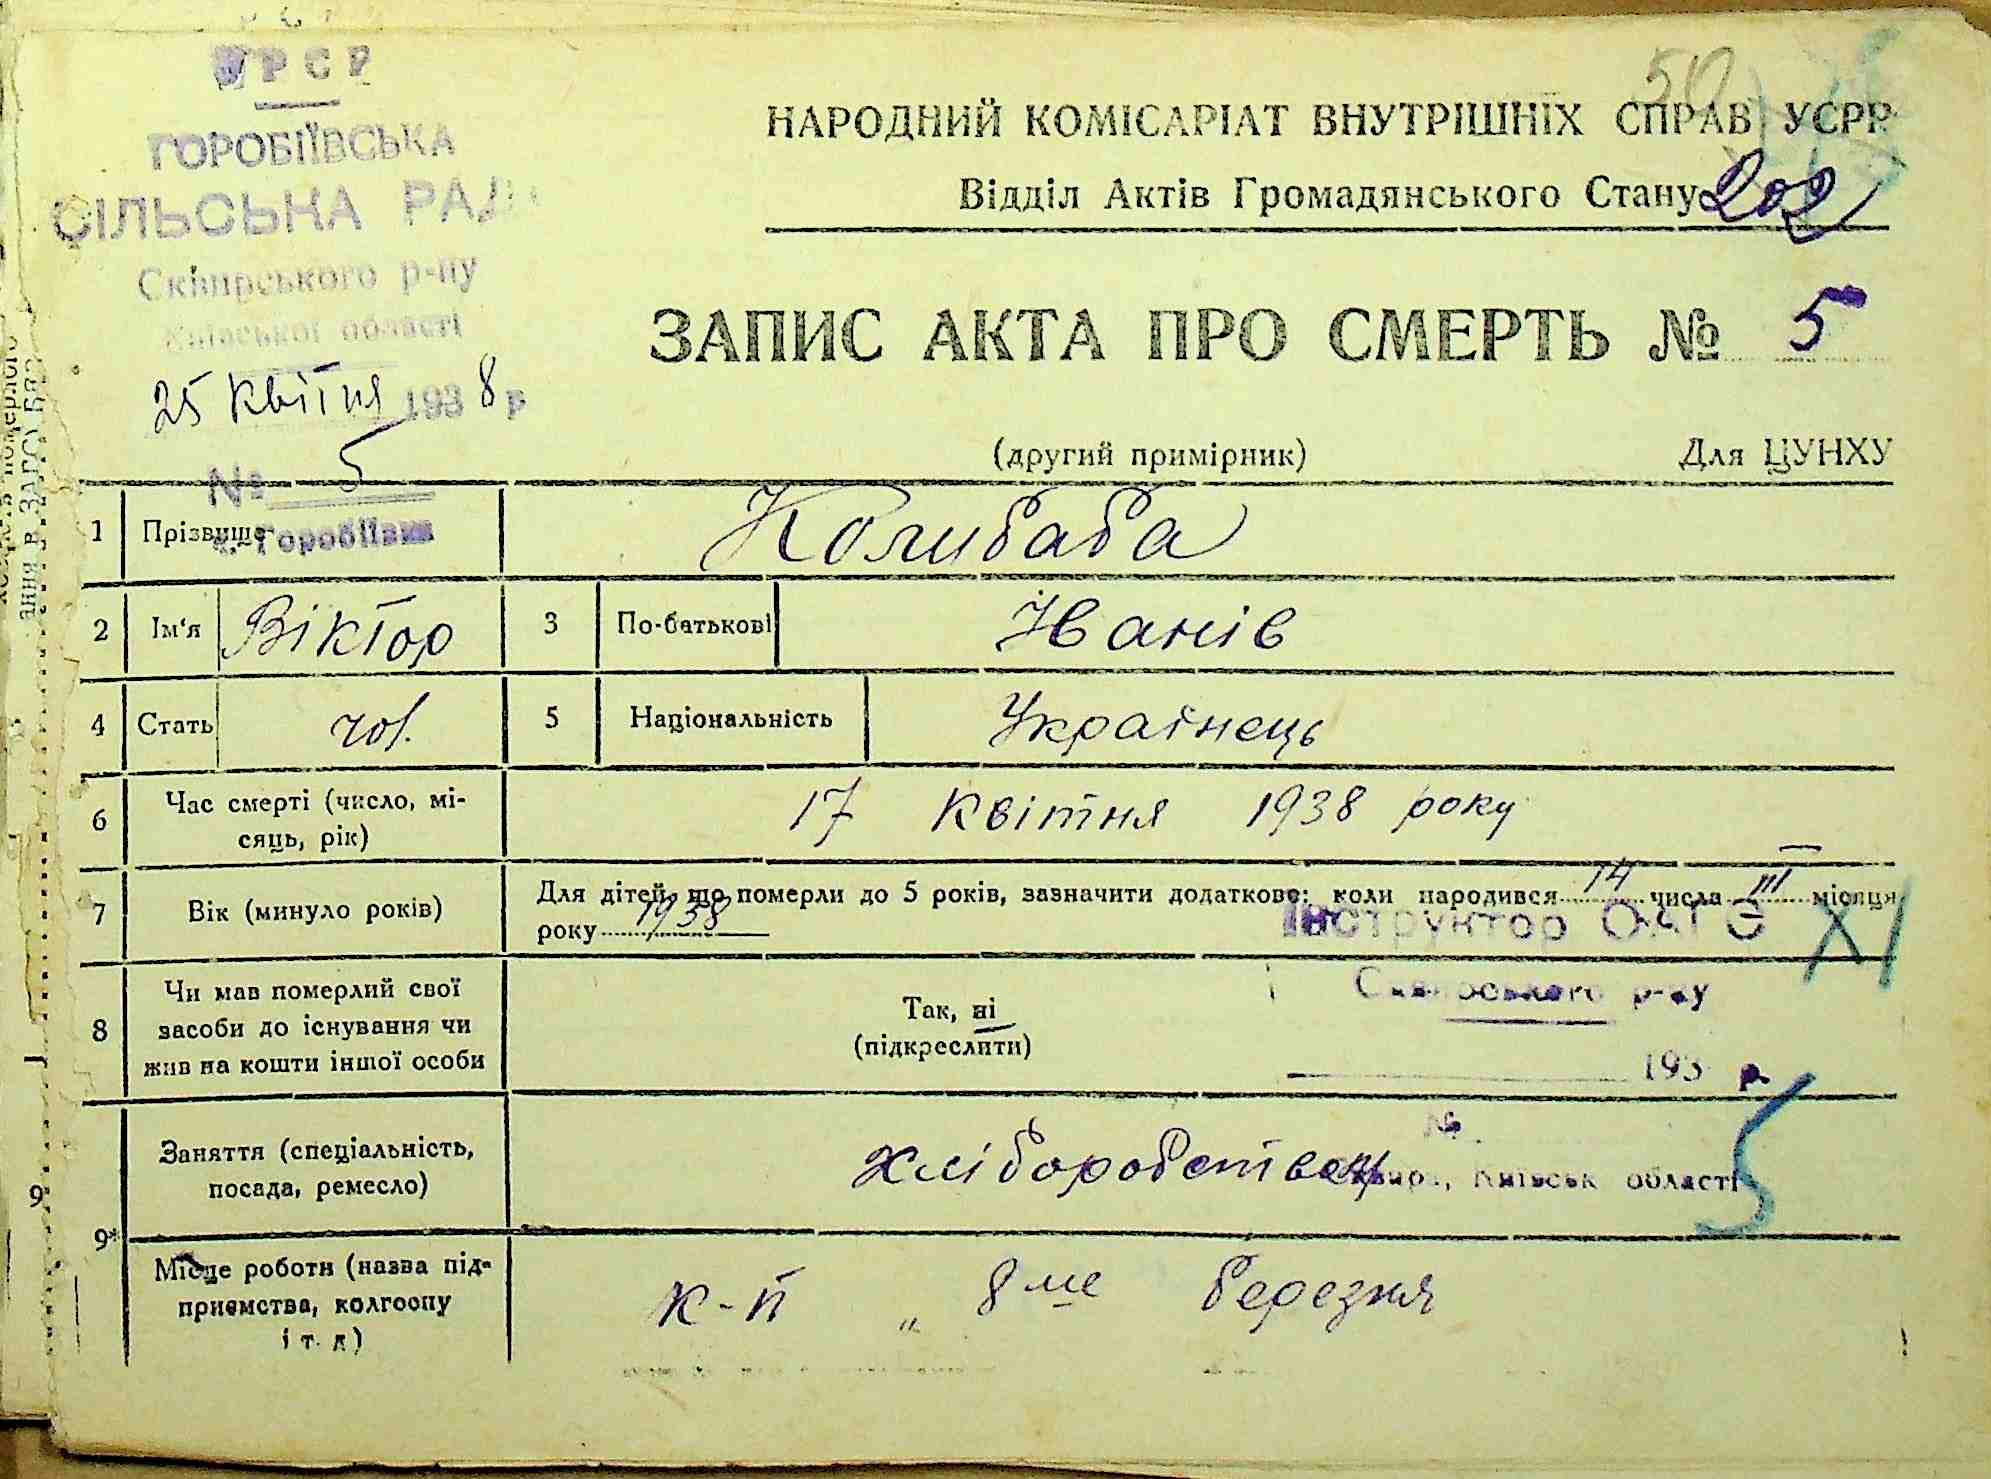 УРСР
ГОРОБІЇВСЬКА
СІЛЬСЬКА РАДА
Сквирського р-ну
Київської області
25 Квітня 1938 р
№ 5
с. Горобіївка
50
НАРОДНИЙ КОМІСАРІАТ ВНУТРІШНІХ СПРАВ УСРР
Відділ Актів Громадянського Стану
202
ЗАПИС АКТА ПРО СМЕРТЬ № 5
(другий примірник) Для ЦУНХУ
1 Прізвище Колибаба
2 Ім'я Віктор 3 По-батькові Іванів
4 Стать чол. 5 Національність Українець
6 Час смерті (число, мі-
сяць, рік) 17 Квітня 1938 року
7 Вік (минуло років) Для дітей, що померли до 5 років, зазначити додатково: коли народився 14 числа III місяця
року 1938
Інструктор ОАГС
Сквирського р-ну
193 р.
№
Сквира, Київськ області
XI
8 Чи мав померлий свої
засоби до існування чи
жив на кошти іншої особи
Так, ні
(підкреслити)
5
9 Заняття (спеціальність,
посада, ремесло) хліборобством
Місце роботи (назва під-
приємства, колгоспу
і т. д) к-п „ 8ме березня
9